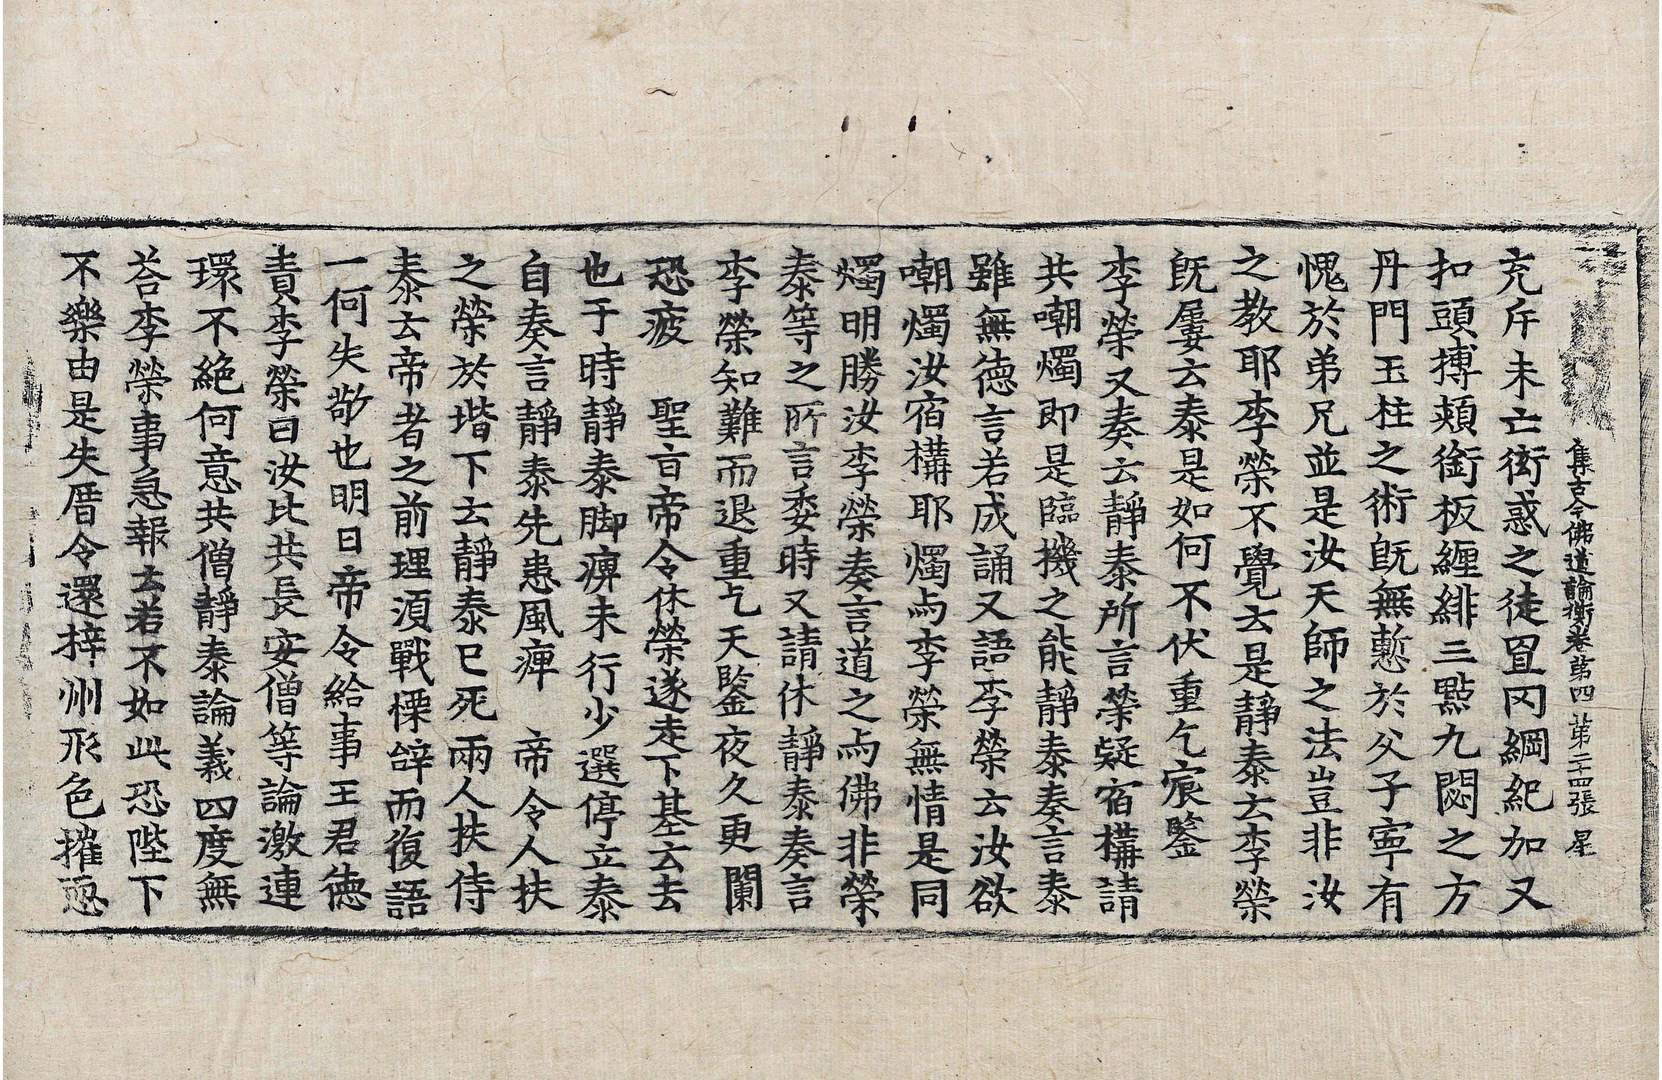 集古今佛道論衡卷第四 第二十四張 星
充斥未亡衒惑之徒罝罔綱紀加又
扣頭搏頰銜板纏緋三點九閟之方
丹門玉柱之術旣無慙於父子寧有
愧於弟兄並是汝天師之法豈非汝
之教耶李榮不覺云是靜泰云李榮
旣屢云泰是如何不伏重乞宸鑒
李榮又奏云靜泰所言榮疑宿構請
共嘲燭即是臨機之能靜泰奏言泰
雖無德言若成誦又語李榮云汝欲
嘲燭汝宿構耶燭与李榮無情是同
燭明勝汝李榮奏言道之与佛非榮
泰等之所言委時又請休靜泰奏言
李榮知難而退重乞天鑒夜久更闌
恐疲 聖旨帝令休榮遂走下基云去
也于時靜泰脚痹未行少選停立泰
自奏言靜泰先患風痺 帝令人扶
之榮於堦下云靜泰已死兩人扶侍
泰云帝者之前理須戰慄辞而復語
一何失敬也明日帝令給事王君德
責李榮曰汝比共長安僧等論激連
環不絕何意共僧靜泰論義四度無
荅李榮事急報云若不如此恐陛下
不樂由是失厝令還梓州形色摧恧